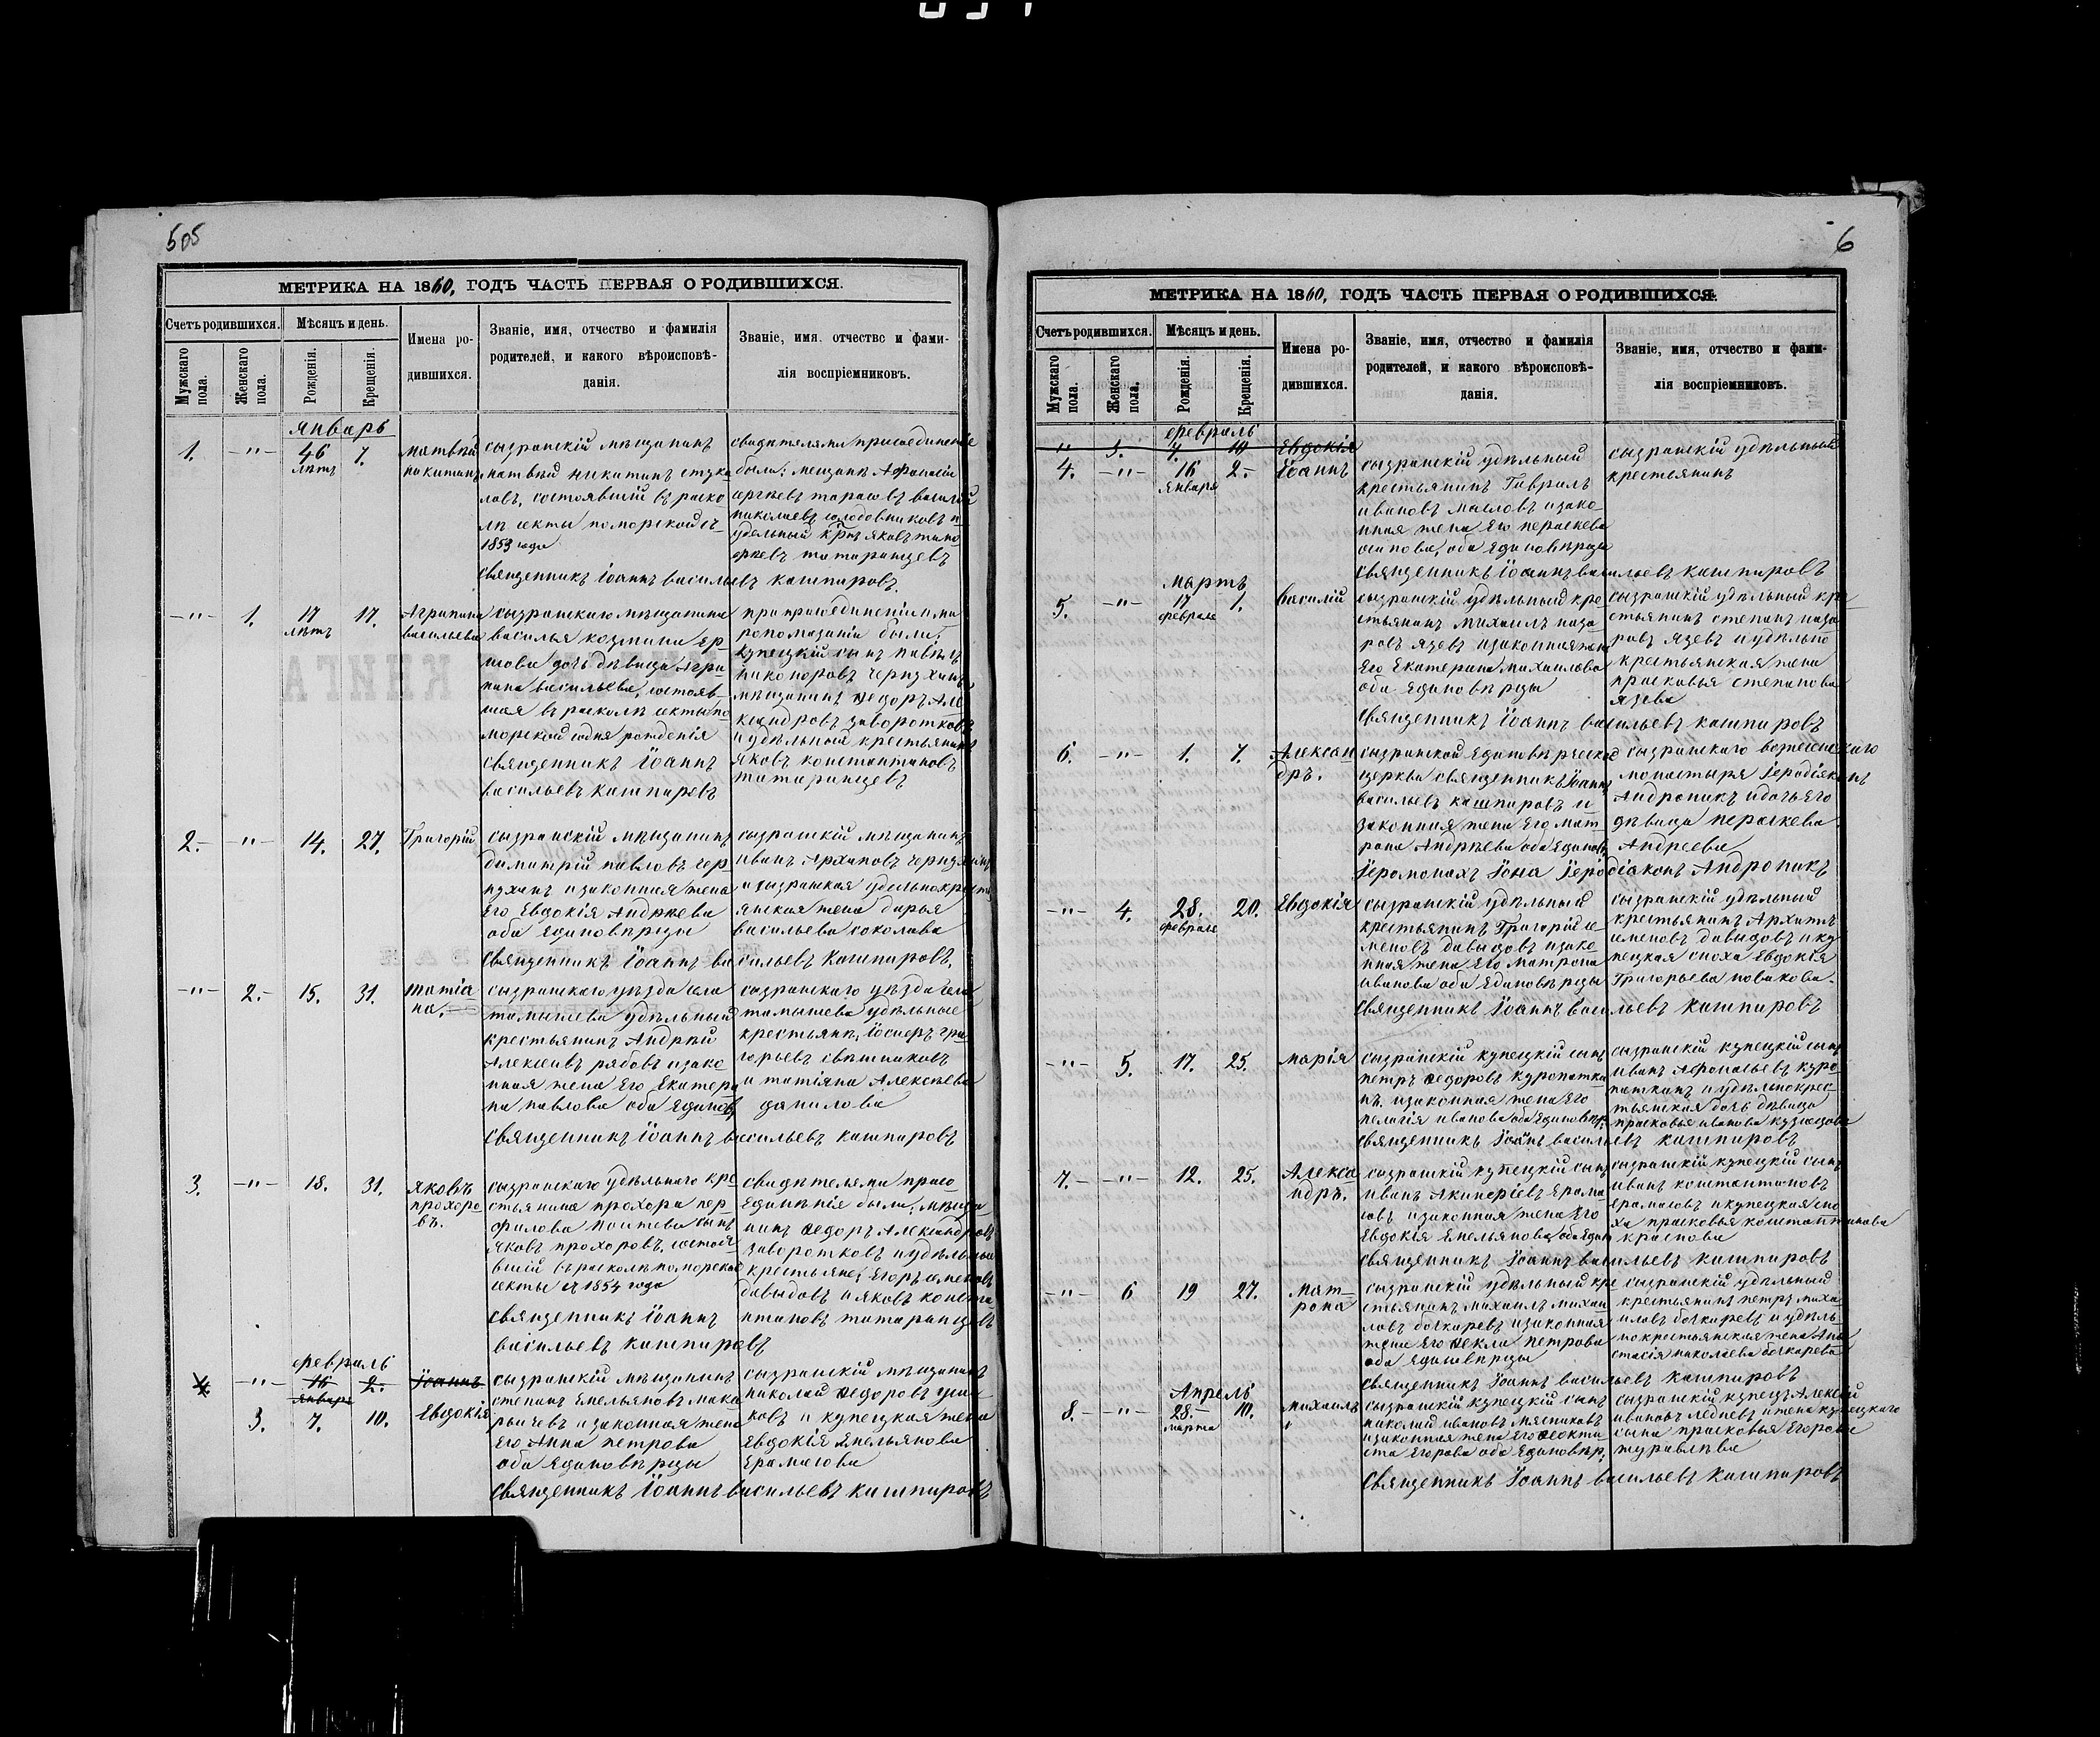 505
МЕТРИКА НА 1860, ГОДЪ ЧАСТЬ ПЕРВАЯ О РОДИВШИХСЯ.
Счетъ родившихся. Мѣсяцъ и день.
Имена ро-
дившихся.
Званіе, имя, отчество и фамилія
родителей, и какого вѣроисповѣ-
данія.
Званіе, имя. отчество и фами-
лія воспріемниковъ.
Мужскаго пола.
Женскаго пола.
Рожденія.
Крещенія.
январь
1. -"- 46 лѣтъ 7.
матвѣй
никитинъ
сызранскій мѣщанинъ
матвѣй никитинъ стука
ловъ, состоявшій въ раско
лѣ секты поморской съ
1853 года
свидѣтелями присоединенія
были; мещане Афанасій
сергѣевъ тарасовъ василій
николаевъ солодовниковъ и
удѣльный крнъ яковъ
татаринцевъ
священникъ Іоаннъ васильевъ кашпировъ.
-"- 1. 17 лѣтъ 17.
Агрипина
васильева
сызранскаго мѣщанина
василья козмина ер-
шова дочь дѣвица Агри
пина васильева, состояв-
шая въ расколѣ секты по
морской содня рожденія
священникъ Іоаннъ
васильевъ кашпировъ
при присоединеніи и ми
ропомазаніи были;
купецкій сынъ павелъ
никоноровъ чернухинъ
мѣщанинъ Ѳедоръ Але
ксандровъ заворотковъ
и удѣльный крестьянинъ
яковъ константиновъ
татаринцевъ
2.- -"- 14. 27. Григорій
сызранскій мѣщанинъ
димитрій павловъ чер-
нухинъ и законная жена
Его Евдокія Андрѣева
оба Единовѣрцы
сызранскій мѣщанинъ
иванъ Архиповъ чернухинъ
и сызранская удельнокресть
янская жена дарья
васильева соколова
священникъ Іоаннъ васильевъ кашпировъ.
-"- 2.- 15. 31. татіа
на.
сызранскаго уѣзда села
томышева удѣльный
крестьянинъ Андрѣй
Алексеивъ рябовъ изако
нная жена Его Екатери
на павлова оба Единов
сызранскаго уѣзда села
томышева удѣльные
крестьяне, Іосифъ гри
горьевъ свѣшниковъ
и татіяна Алексѣева
данилова
священникъ Іоаннъ васильевъ кашпировъ
3. -"- 18. 31. яковъ
прохоро
въ.
сызранскаго удѣльнаго кре
стьянина прохора пер-
филова сынъ
яковъ прохоровъ, состояв
вшій въ расколѣ поморской
секты съ 1854 года
священникъ Іоаннъ
васильевъ кашпировъ
свидѣтелями присо
Единѣнія были; мѣща
нинъ Ѳедоръ Александровъ
заворотковъ и удѣльные
крестьяне; Егоръ семеновъ
давыдовъ и яковъ конста
нтиновъ татаринцевъ
февраль
4. -"- 16 января 2. Іоаннъ
3. 7. 10. Евдокія
сызранскій мѣщанинъ
степанъ Емельяновъ мака
рычевъ и законная жена
Его Анна петрова
оба Единовѣрцы
сызранскій мѣщанинъ
николай Ѳедоровъ
ковъ и купецкая жена
Евдокія Емельянова
Ерамасова
священникъ Іоаннъ васильевъ кашпировъ
6
МЕТРИКА НА 1860, ГОДЪ ЧАСТЬ ПЕРВАЯ О РОДИВШИХСЯ.
Счетъ родившихся. Мѣсяцъ и день.
Имена ро-
дившихся.
Званіе, имя, отчество и фамилія
родителей, и какого вѣроисповѣ-
данія.
Званіе, имя, отчество и фами-
лія воспріемниковъ.
Мужскаго пола.
Женскаго пола.
Рожденія.
Крещенія.
февраль
" 3. 7. 10 Евдокія
4. -"- 16 января 2.- Іоаннъ
сызранскій удѣльный
крестьянинъ Гаврилъ
ивановъ масловъ изако-
нная жена Его параскева
осипова, оба Единовѣрцы
сызранскій удѣльный
крестьянинъ
священникъ Іоаннъ васильевъ кашпировъ
мартъ
5. -"- 17 февраля 1. василій
сызранскій удѣльный кре-
стьянинъ михаилъ наза
ровъ язевъ и законная жена
Его Екатерина михаилова
оба Единовѣрцы
сызранскій удѣльный кре
стьянинъ степанъ наза
ровъ язевъ и удѣльно
крестьянская жена
прасковья степанова
язева
священникъ Іоаннъ васильевъ кашпировъ
6. -"- 1. 7. Алексан
дръ.
сызранской Единовѣрческой
церкви священникъ Іоаннъ
васильевъ кашпировъ и
законная жена Его мат
рона Андрѣева оба Единов.
сызранскаго вознесенскаго
монастыря Іеродіяконъ
Андроникъ и дочь Его
дѣвица параскева
Андреева
Іеромонахъ Іона Іеродіаконъ Андроникъ
-"- 4. 28. февраля 20. Евдокія
сызранскій удѣльный
крестьянинъ Григорій се
меновъ давыдовъ и зако
нная жена Его матрона
иванова оба Единовѣрцы
сызранскій удѣльный
крестьянинъ Архипъ
семеновъ давыдовъ и ку
пецкая сноха Евдокія
Григорьева новикова.
священникъ Іоаннъ васильевъ кашпировъ
-"- 5. 17. 25. марія
сызранскій купецкій сынъ
петръ Ѳедоровъ куропатки
нъ. и законная жена Его
пелагія иванова оба Единовѣр;
сызранскій купецкій сынъ
иванъ Афонасьевъ куро
паткинъ и удѣлнокрес
тьянская дочь дѣвица
прасковья иванова кузнецова
священникъ Іоаннъ васильевъ кашпировъ
7.- -"- 12. 25. Алекса
ндръ.
сызранскій купецкій сынъ
иванъ Акинфіевъ Ерама
совъ и законная жена Его
Евдокія Емельянова оба Един
сызранскій купецкій сынъ
иванъ константиновъ
Ерамасовъ и купецкая сно
ха прасковья константинова
краснова
священникъ Іоаннъ васильевъ кашпировъ
-"- 6 19 27. мат-
рона
сызранскій удѣльный кре
стьянинъ михаилъ михаи
ловъ бочкаревъ и законная
жена Его Ѳекла петрова
оба Единовѣрцы
сызранскій удѣльный
крестьянинъ петръ миха
иловъ бочкаревъ и удѣль-
нокрестьянская жена Ана
стасія николаева бочкарева
священникъ Іоаннъ васильевъ кашпировъ
Апрель
8.- -"- 28.- марта 10. михаилъ
сызранскій купецкій сынъ
николай ивановъ мясниковъ
и законная жена Его Ѳеокти-
ста Егорова оба Единовѣр;
сызранскій купецъ Алексей
ивановъ ледневъ и жена купецкаго
сына прасковья Егорова
журавлѣва
священникъ Іоаннъ васильевъ кашпировъ